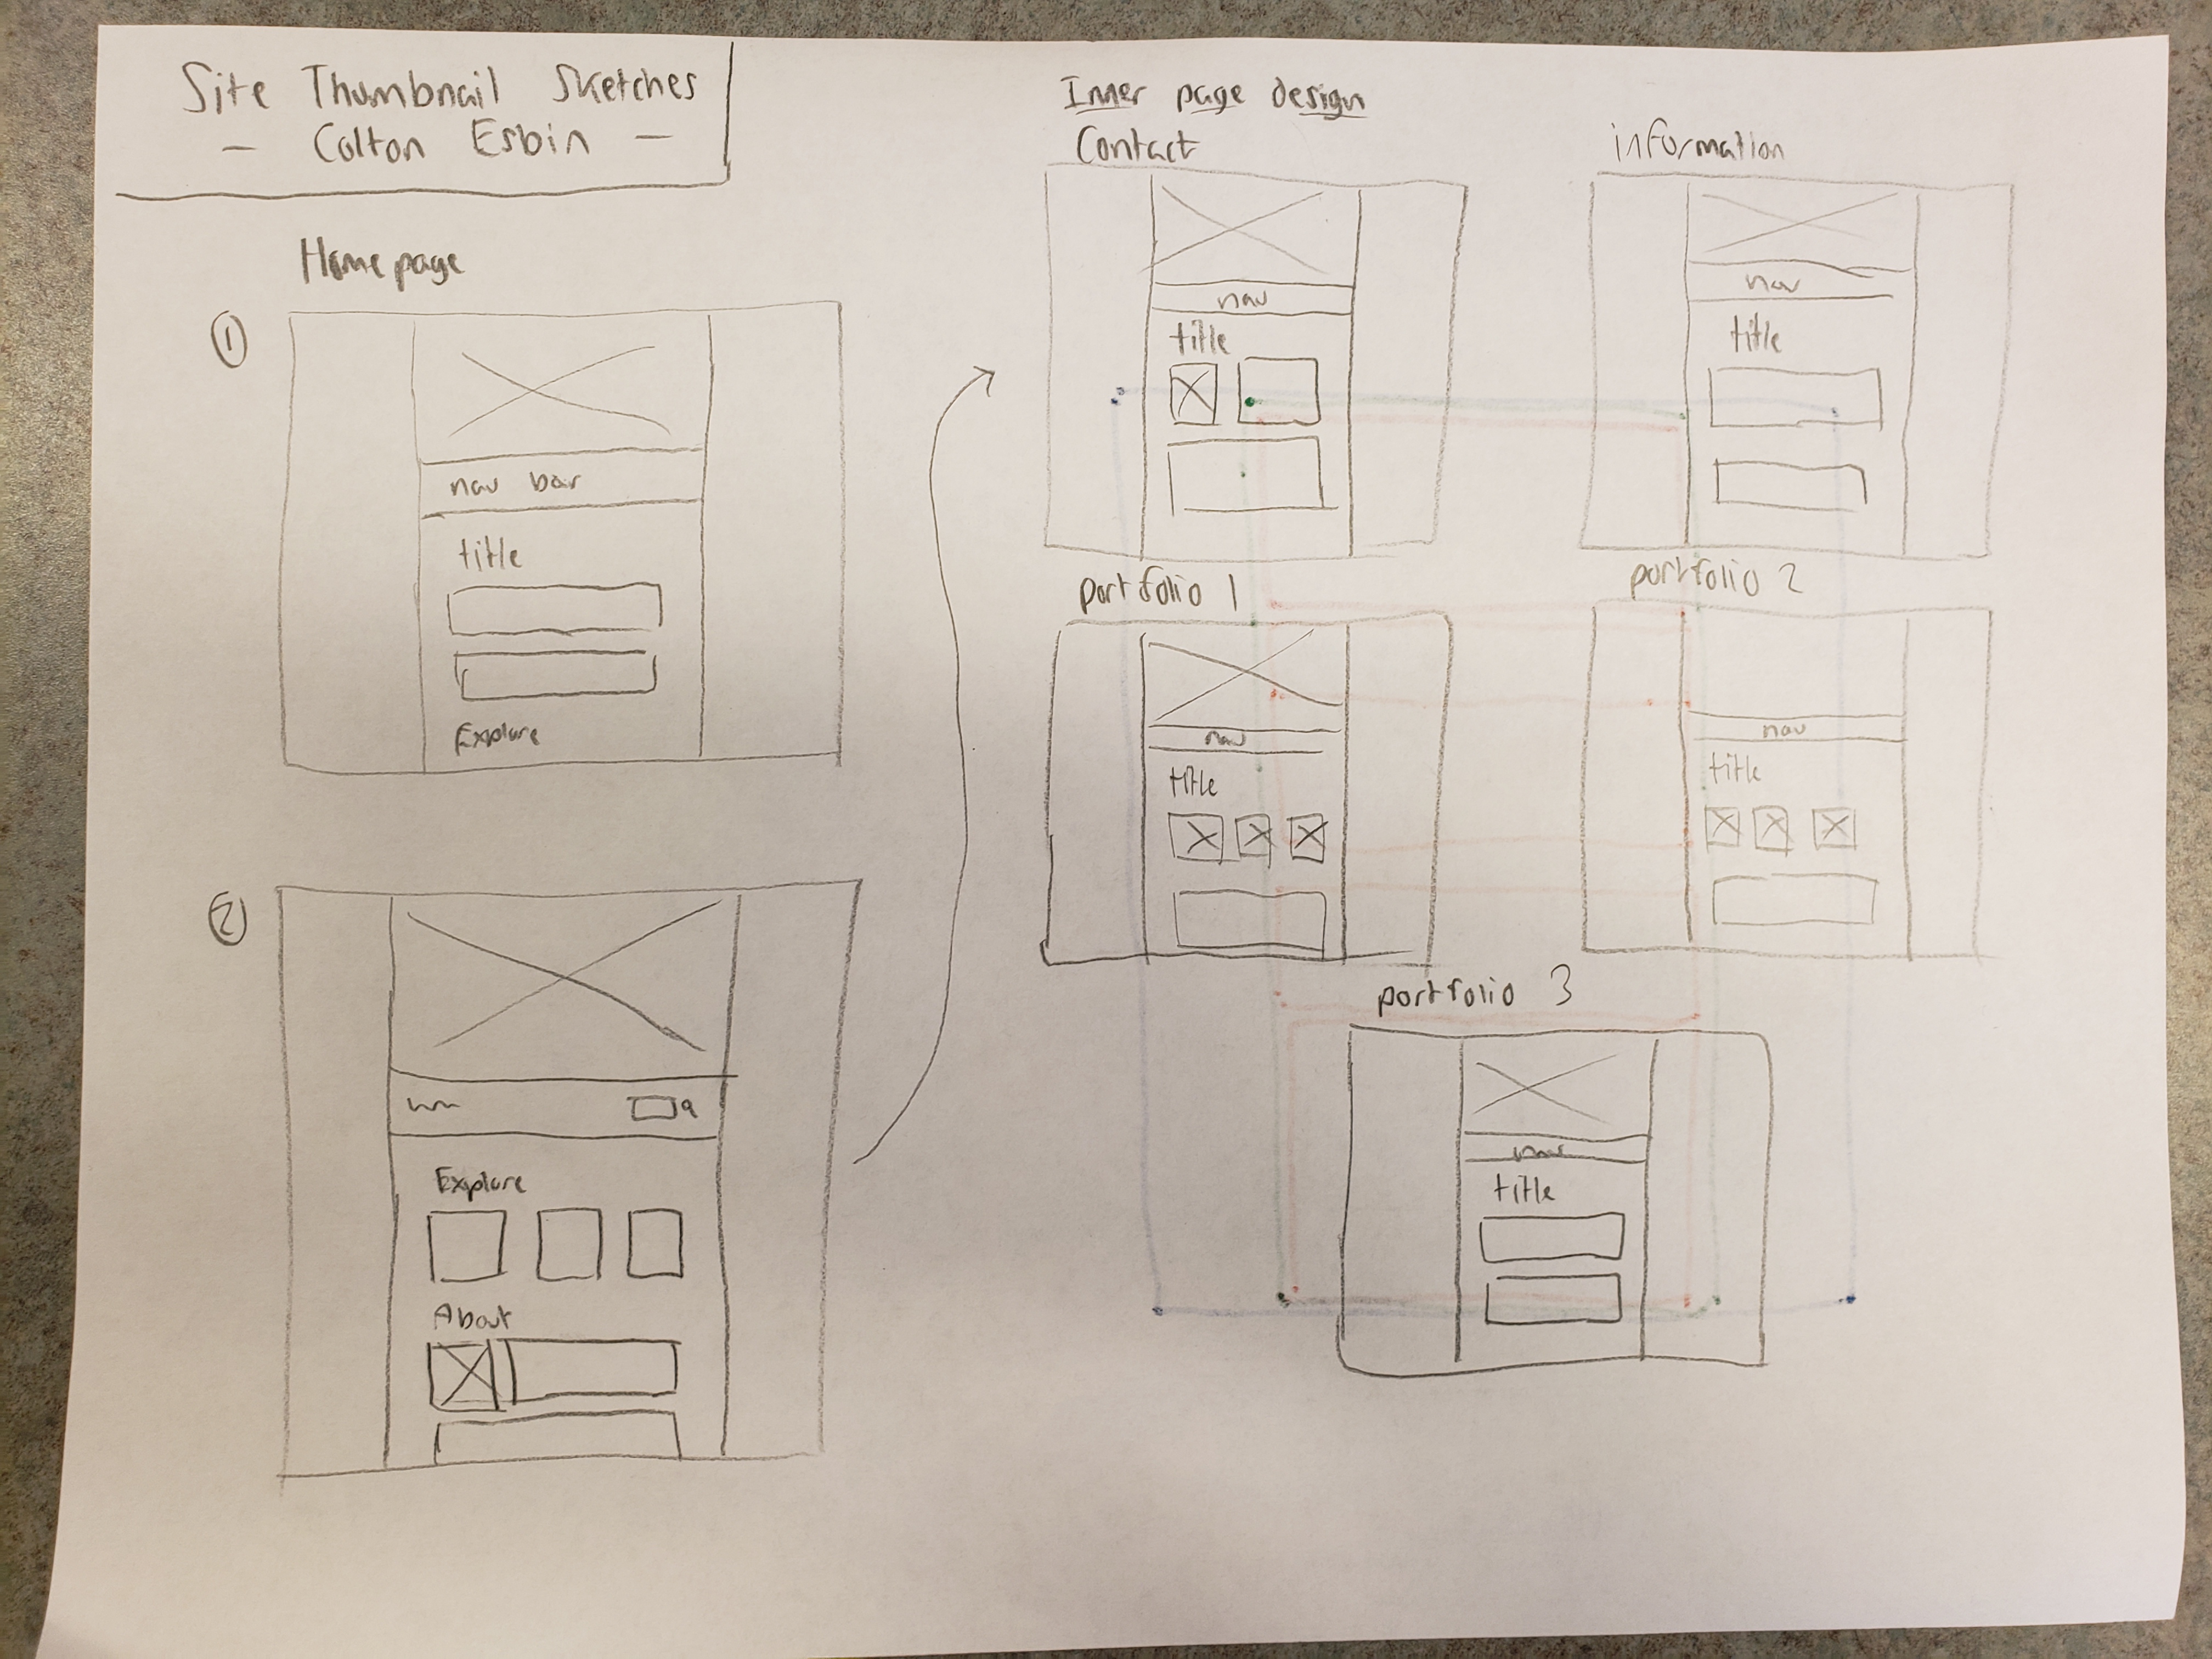 Site Thumbnail Sketches
- Colton Esbin -
Homepage
1
nav bar
title
Explore
2
Explore
About
Inner page design
Contact
nav
title
information
nav
title
portfolio 1
nav
title
portfolio 2
nav
title
portfolio 3
nav
title